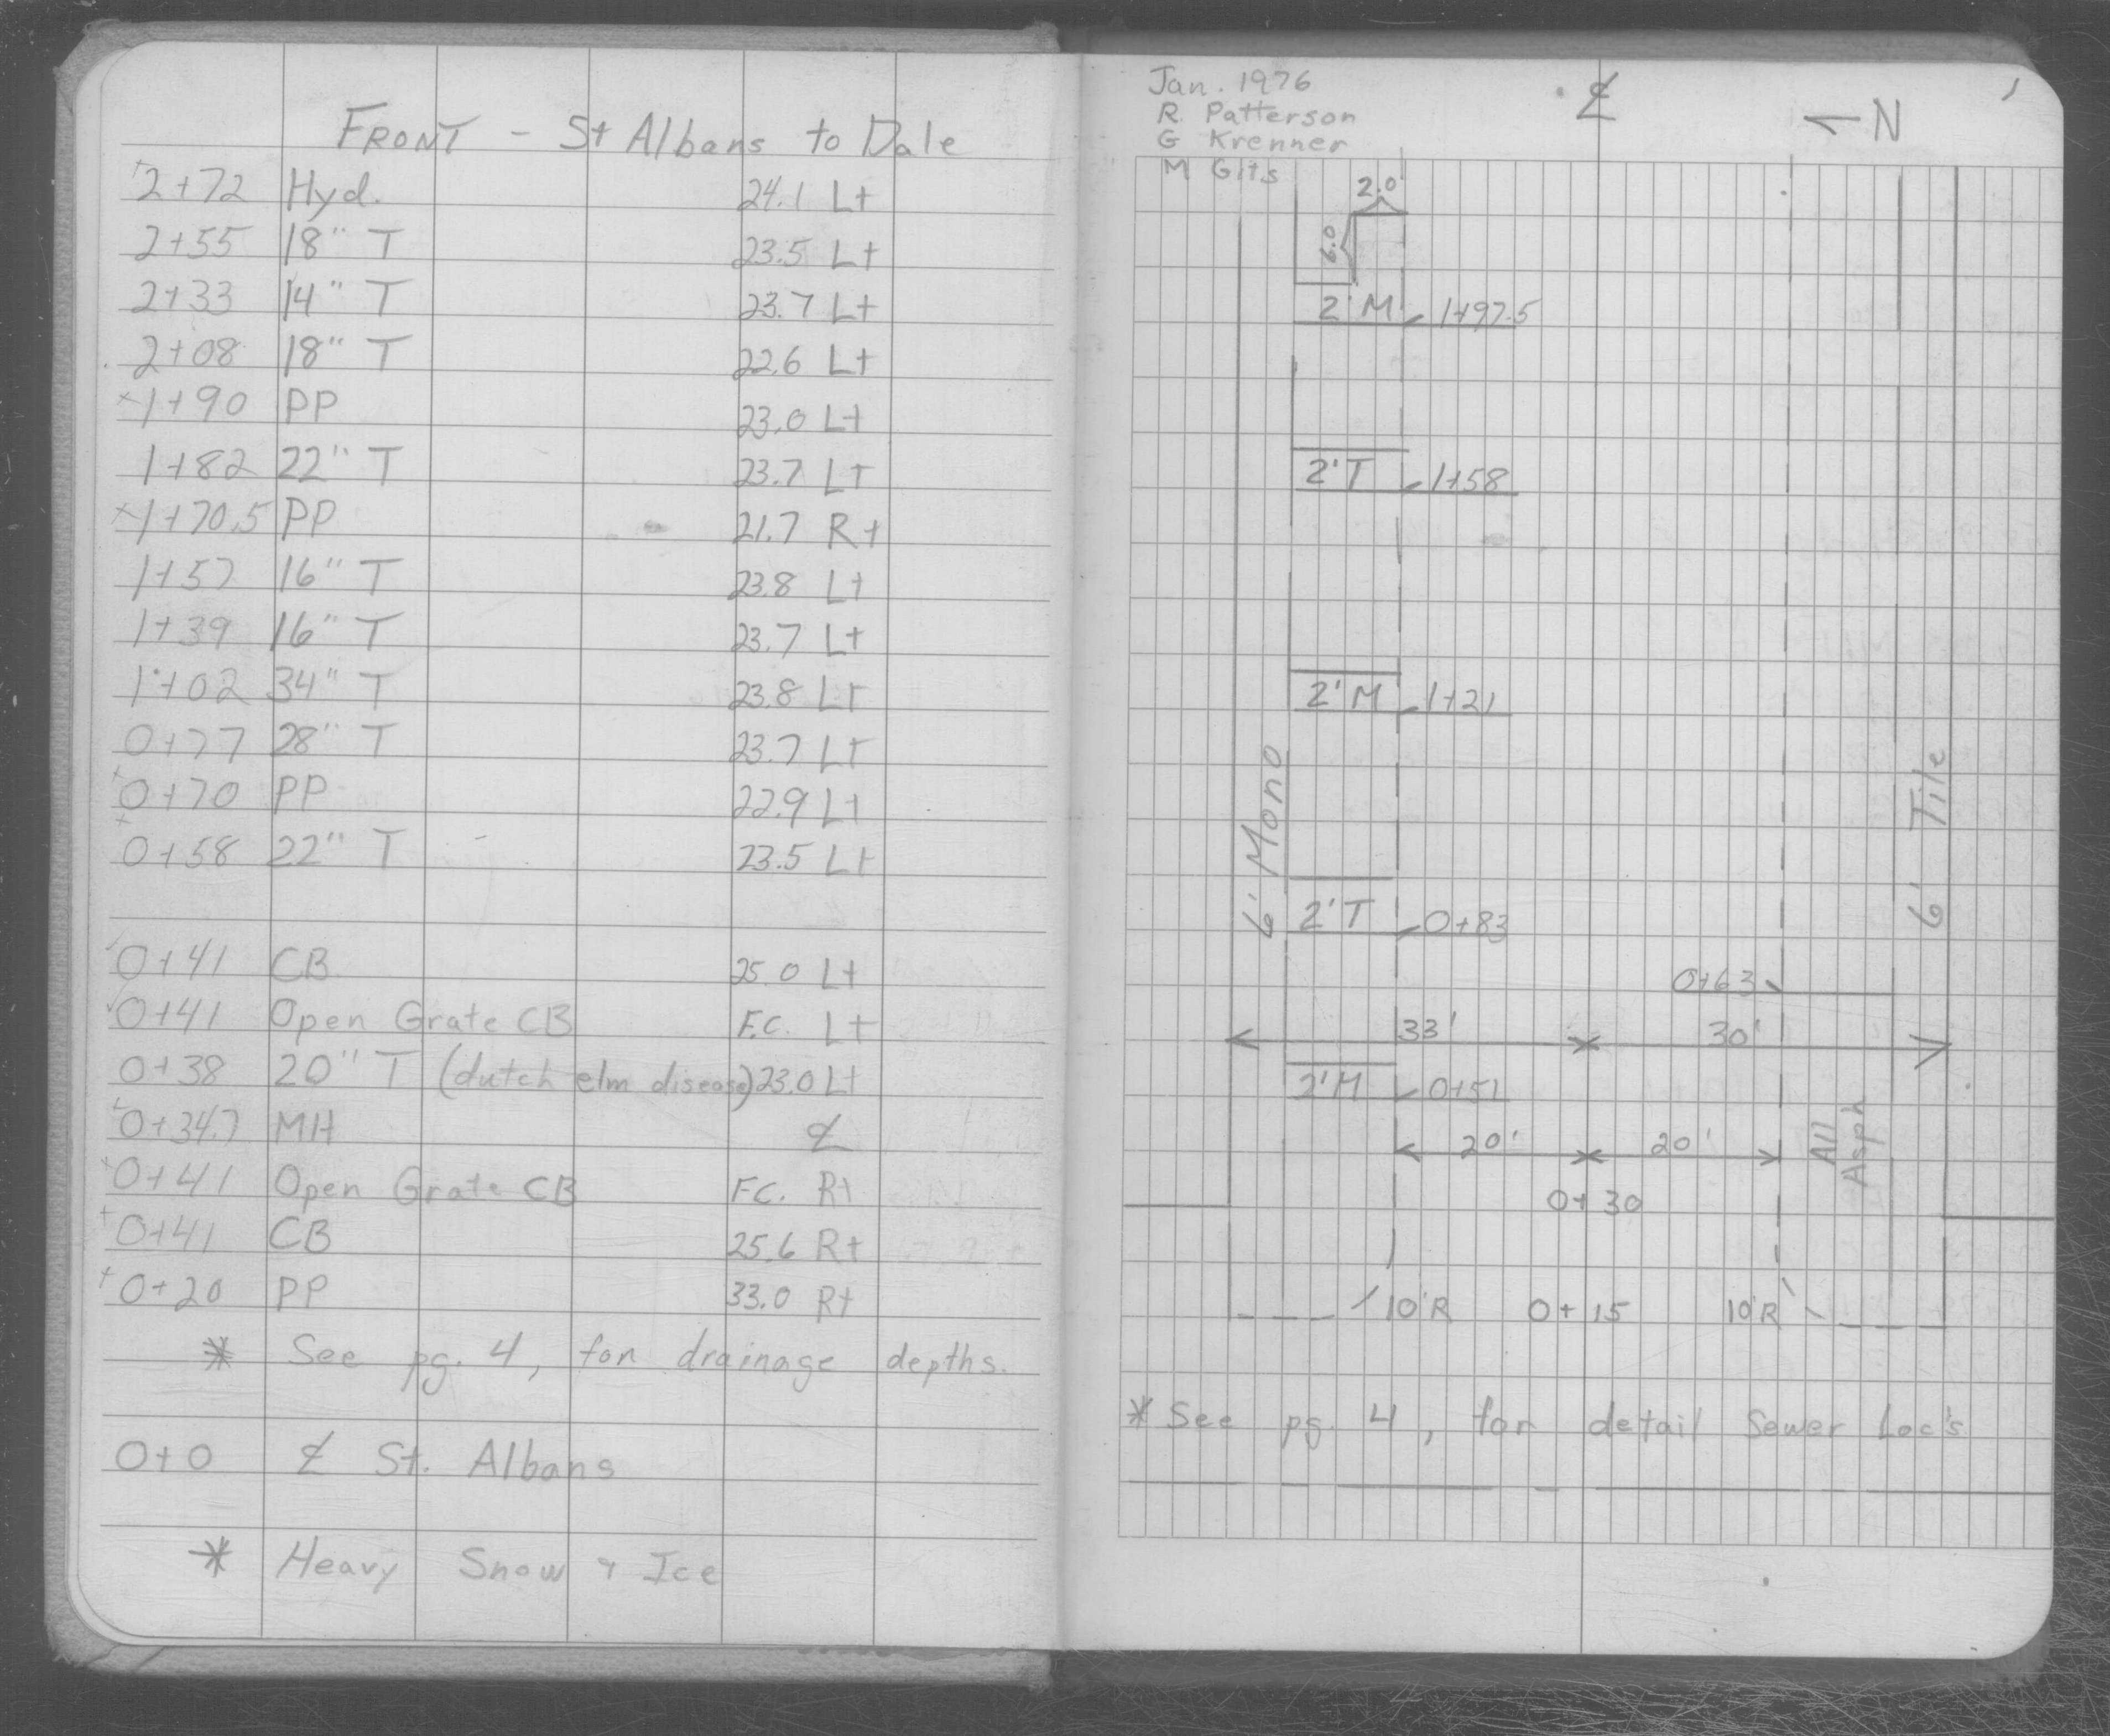 FRONT - St Albans to Dale
2+72 Hyd. 24.1 Lt
2+55 18" T 23.5 Lt
2+33 14" T 23.7 Lt
2+08 18" T 22.6 Lt
1+90 PP 23.0 Lt
1+82 22" T 23.7 Lt
1+70.5 PP 21.7 Rt
1+57 16" T 23.8 Lt
1+39 16" T 23.7 Lt
1+02 34" T 23.8 Lt
0+77 28" T 23.7 Lt
0+70 PP 22.9 Lt
0+58 22" T 23.5 Lt
0+41 CB 25.0 Lt
0+41 Open Grate CB F.C. Lt
0+38 20" T (dutch elm disease) 23.0 Lt
0+34.7 MH ℄
0+41 Open Grate CB F.C. Rt
0+41 CB 25.6 Rt
0+20 PP 33.0 Rt
* See pg. 4, for drainage depths.
0+0 ℄ St. Albans
* Heavy Snow & Ice
Jan. 1976
R. Patterson
G Krenner
M Gits
℄
N
1
2.0
6.0
2' M 1+97.5
2' T 1+58
2' M 1+21
6' Mono
6' Tile
2' T 0+83
0+63
33' 30'
2' M 0+51
20' 20'
All
Asph
0+30
10'R 0+15 10'R
* See pg. 4, for detail Sewer Loc's